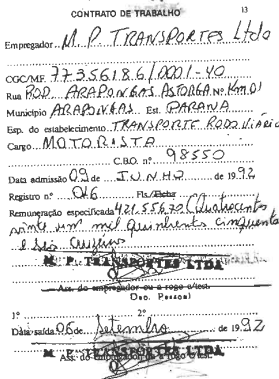 CONTRATO DE TRABALHO 13
Empregador M. P. TRANSPORTES Ltdo
CGC/MF 77.356186/0001-40
Rua ROD. ARAPONGAS ASTORGA Nº Km 01
Município ARAPONGAS Est. PARANA
Esp. do estabelecimento TRANSPORTE RODOViÁRiO
Cargo MOTORISTA
C.B.O. nº 98550
Data admissão 09 de JUNHO de 1992
Registro nº 016 Fls./Ficha
Remuneração especificada 421.556,70 (Quatrocentos
vinte um mil quinhentos cinquenta
e seis cruzeiros
M. P. TRANSPORTES LTDA
Ass. do empregador ou a rogo c/test.
Dep. Pessoal
1º 2º
Data saída 06 de setembro de 1992
M. P. TRANSPORTES LTDA
Ass. do empregador ou a rogo c/test.